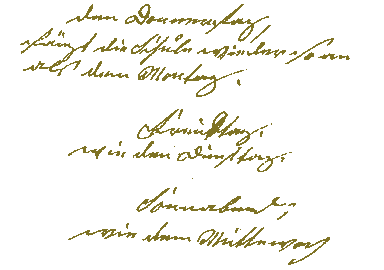 den Donnerstag,
fängt die Schule wieder so an
als dem Montag.
Freitag.
wie den Dinstag.
Sonnabend,
wie dem Mittewoch